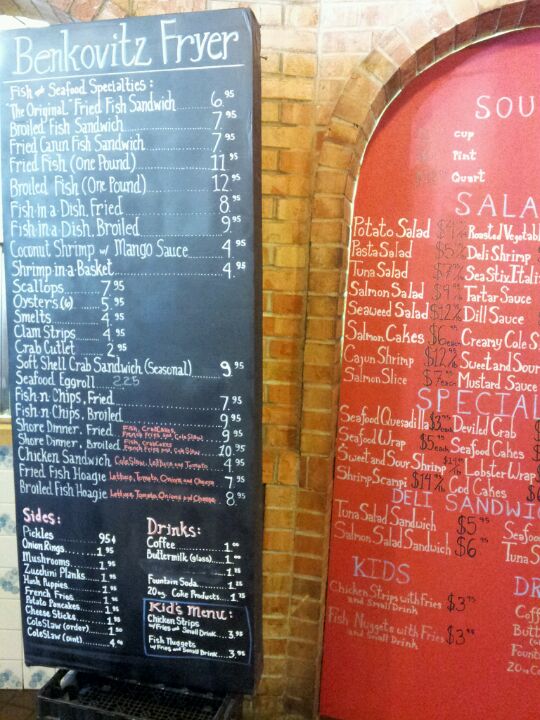 Benkovitz Fryer
Fish and Seafood Specialties:
"The Original" Fried Fish Sandwich 6.95
Broiled Fish Sandwich 7.95
Fried Cajun Fish Sandwich 7.95
Fried Fish (One Pound) 11.95
Broiled Fish (One Pound) 12.95
Fish-in-a-Dish, Fried 8.95
Fish-in-a-Dish, Broiled 9.95
Coconut Shrimp w/ Mango Sauce 4.95
Shrimp in a Basket 4.95
Scallops 7.95
Oysters (6) 5.95
Smelts 4.95
Clam Strips 4.95
Crab Cutlet 2.95
Soft Shell Crab Sandwich (Seasonal) 9.95
Seafood Eggroll 2.25
Fish n' Chips, Fried 7.95
Fish n' Chips, Broiled 9.95
Shore Dinner, Fried Fish, Crab Cake, French Fries and Cole Slaw 9.95
Shore Dinner, Broiled Fish, Crab Cake, French Fries and Cole Slaw 10.95
Chicken Sandwich Cole Slaw, Lettuce and Tomato 4.95
Fried Fish Hoagie Lettuce, Tomato, Onions and Cheese 7.95
Broiled Fish Hoagie Lettuce, Tomato, Onions and Cheese 8.95
Sides:
Pickles 95¢
Onion Rings 1.95
Mushrooms 1.95
Zucchini Planks 1.95
Hush Puppies 1.95
French Fries 1.95
Potato Pancakes 1.95
Cheese Sticks 1.95
Cole Slaw (order) 1.50
Cole Slaw (pint) 4.00
Drinks:
Coffee 1.00
Buttermilk (glass) 1.00
1.25
Fountain Soda 1.25
20 oz. Coke Products 1.75
Kid's Menu:
Chicken Strips
w/ Fries and Small Drink 3.95
Fish Nuggets
w/ Fries and Small Drink 3.95
SOU
cup
Pint
Quart
SALA
Potato Salad
Pasta Salad
Tuna Salad
Salmon Salad
Seaweed Salad
Salmon Cakes
Cajun Shrimp
Salmon Slice
Roasted Vegetabl
Deli Shrimp
Sea Stix Itali
Tartar Sauce
Dill Sauce
Creamy Cole S
Sweet and Sour
Mustard Sauce
SPECIAL
Seafood Quesadilla
Seafood Wrap
Sweet and Sour Shrimp
Shrimp Scampi
Deviled Crab
Seafood Cakes
Lobster Wrap
Cod Cakes
DELI SANDWIC
Tuna Salad Sandwich $5.95
Salmon Salad Sandwich $6.95
Seafoo
Tuna S
KIDS
Chicken Strips with Fries
and Small Drink $3.75
Fish Nuggets with Fries
and Small Drink $3.95
DR
Coff
Butt
Fount
20oz Co